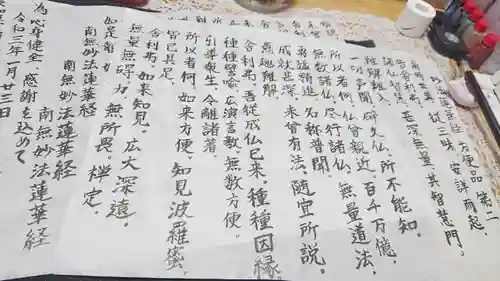 妙法蓮華経方便品第二
爾時世尊。従三昧。安詳而起。
告舎利弗。
諸仏智慧。甚深無量。其智慧門。
難解難入。
一切声聞。辟支仏。所不能知。
所以者何。仏曾親近。百千万億。
無数諸仏。尽行諸仏。無量道法。
勇猛精進。名称普聞。
成就甚深。未曾有法。随宜所説。
意趣難解。
舎利弗。吾従成仏已来。種種因縁。
種種譬喩。広演言教。無数方便。
引導衆生。令離諸著。
所以者何。如来方便。知見波羅蜜。
皆已具足。
舎利弗。如来知見。広大深遠。
無量無碍。力。無所畏。禅定。
南無妙法蓮華経
南無妙法蓮華経
南無妙法蓮華経
心身健全、感謝を込めて
令和三年一月廿三日